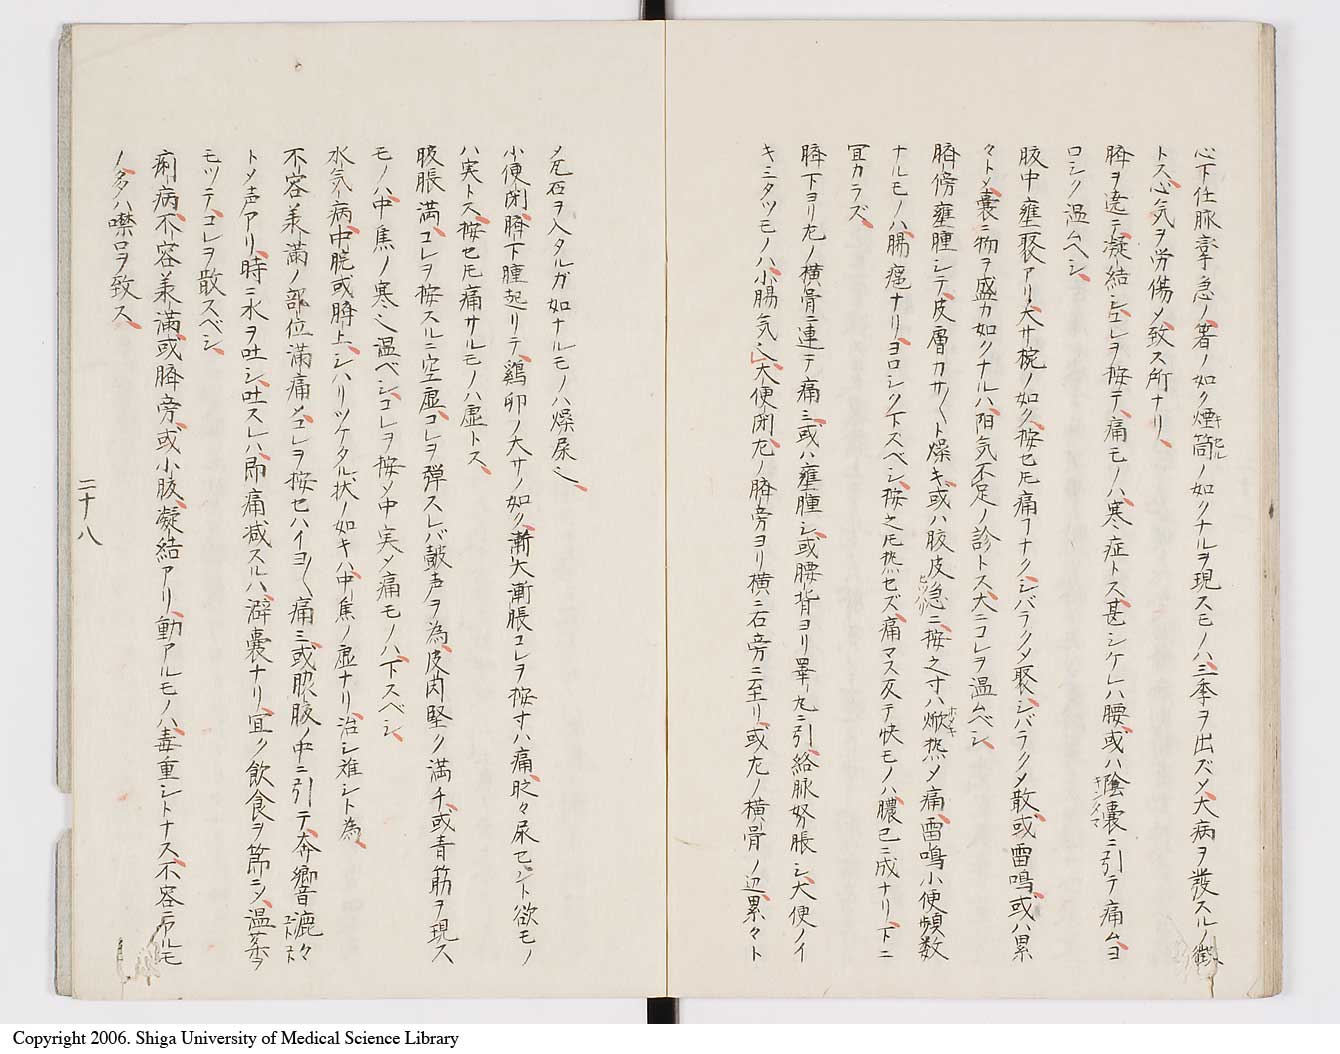 心下任脉攣急ノ箸ノ如ク煙筒ノ如クナルヲ現スモノハ三季ヲ出ズメ大病ヲ發スルノ徴
トス心気ヲ労傷メ致ス所ナリ
臍ヲ遶テ凝結シコレヲ按テ痛モノハ寒症トス甚シケレハ腰或ハ陰囊ニ引テ痛ムヨ
ロシク温ムヘシ
腹中壅聚アリ大サ椀ノ如ク按セ𪜈痛フナクシバラクメ聚シバラクメ散或雷鳴或ハ累
々トメ囊ニ物ヲ盛カ如クナルハ陽気不足ノ診トス大ニコレヲ温ムベシ
臍傍壅腫シテ皮膚カサ〱ト燥キ或ハ腹皮急ニ按之寸ハ焮𤍠メ痛雷鳴小便頻数
ナルモノハ腸癰ナリヨロシク下スベシ按之𪜈𤍠セズ痛マス反テ快モノハ膿已ニ成ナリ下ニ
冝カラズ
臍下ヨリ左ノ横骨ニ連テ痛ミ或ハ壅腫シ或腰背ヨリ睾丸ニ引絡脉努脹シ大便ノイ
キミタツモノハ小腸気也大便閉左ノ臍旁ヨリ横ニ右旁ニ至リ或左ノ横骨ノ辺累々ト
メ瓦石ヲ入タルガ如ナルモノハ燥屎也
小便閉臍下腫起リテ鶏卵ノ大サノ如ク漸大漸脹コレヲ按寸ハ痛眨々尿セント欲モノ
ハ実トス按セ𪜈痛サルモノハ虚トス
腹脹満コレヲ按スルニ空虚コレヲ弾スレバ皷声ヲ為皮肉堅ク満チ或青筋ヲ現ス
モノハ中焦ノ寒也温ベシコレヲ按メ中実メ痛モノハ下スベシ
水気病中脘或臍上シハリツケタル状ノ如キハ中焦ノ虚ナリ治シ难シト為
不容羕滿ノ部位滿痛メコレヲ按セハイヨ〱痛ミ或腺腹ノ中ニ引テ奔響音漉々
トメ声アリ時ニ水ヲ吐シ吐スレハ即痛减スルハ澼囊ナリ宜ク飲食ヲ節ニメ温薬ヲ
モツテコレヲ散スベシ
痢病不容羕滿或臍旁或小腹凝結アリ動アルモノハ毒重シトナス不容ニ芇ルモ
ノ多ハ噤口ヲ致ス
二十八
Copyright 2006. Shiga University of Medical Science Library